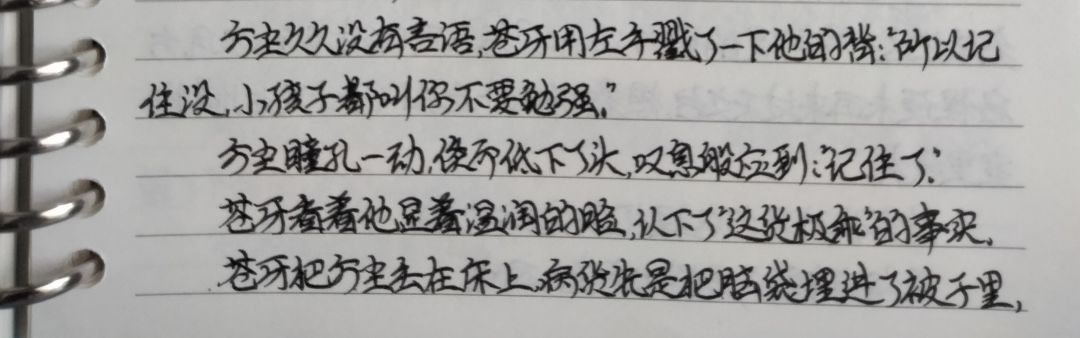 方尘久久没有言语,苍牙用左手戳了一下他的背:“所以记
住没,小孩子都叫你不要勉强。”
方尘瞳孔一动,倏而低下了头,叹息般应到:“记住了。”
苍牙看着他显着湿润的脸,认下了“这张极乖”的事实。
苍牙把方尘丢在床上,病张是把脑袋埋进了被子里,